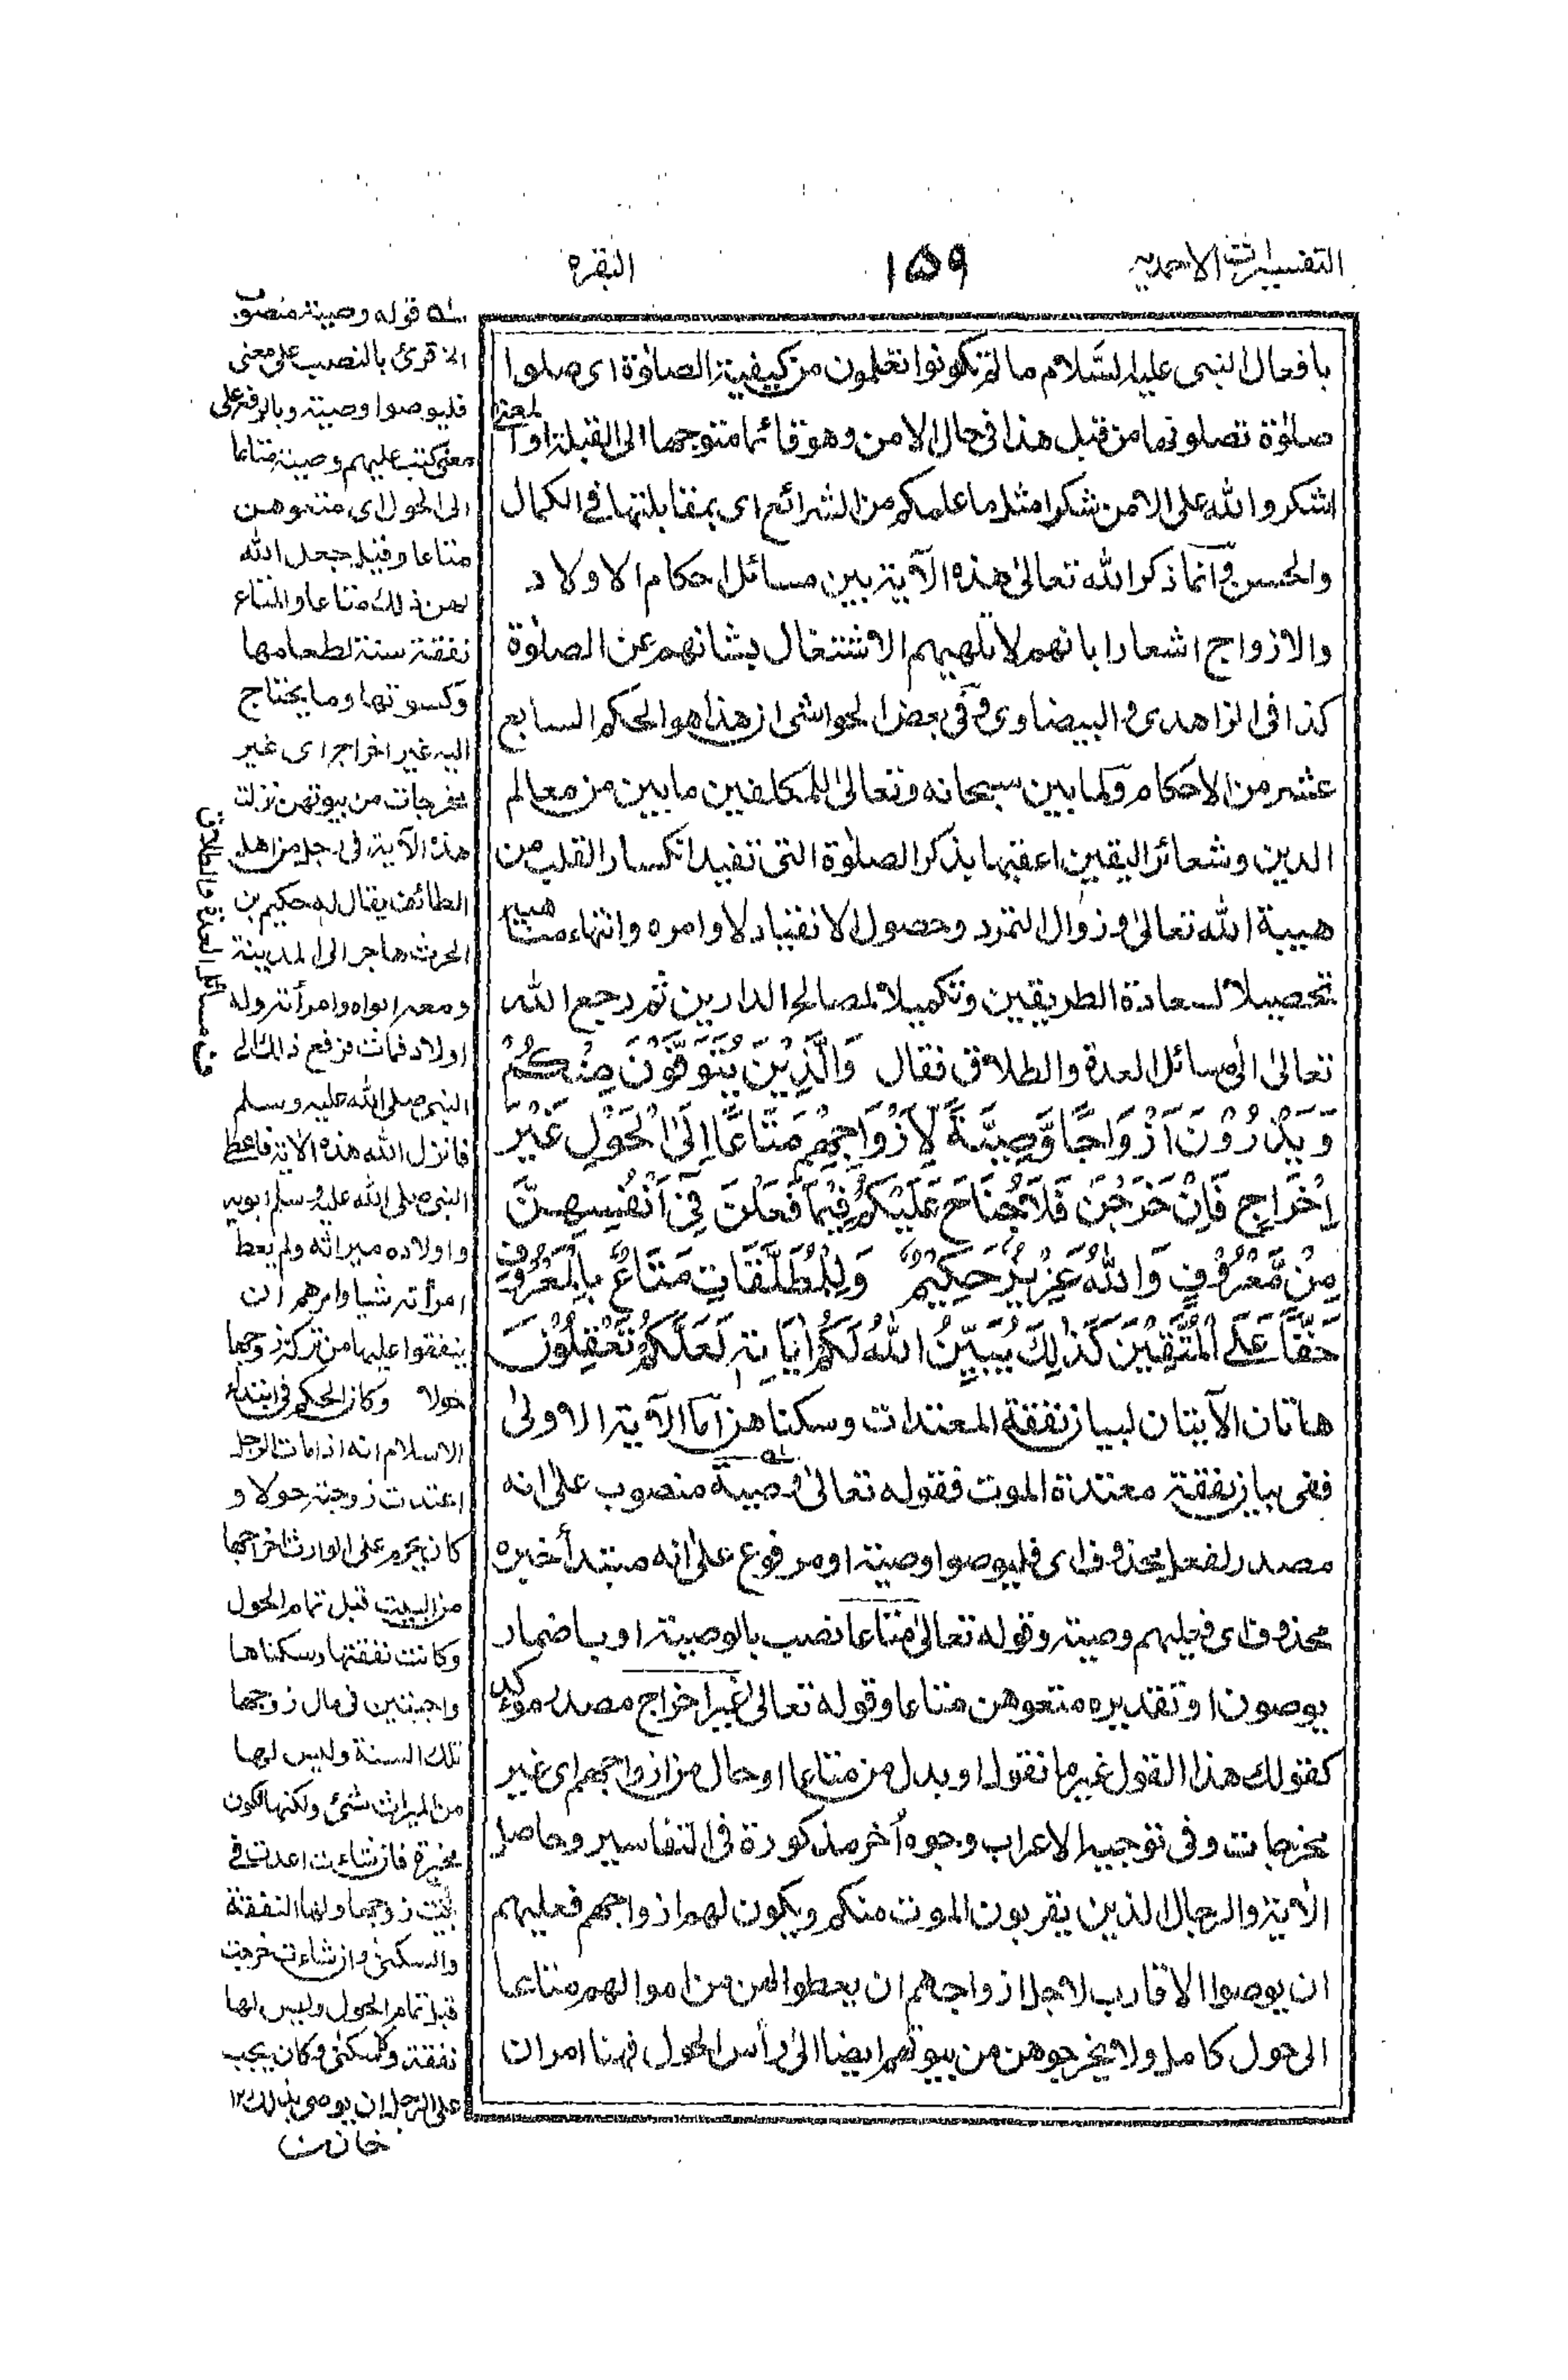 التفسيرات الاحمديه
١٥٩
البقره
بافعال النبى عليه السلام مالم تكونوا تعلمون من كيفية الصلوٰة اى صلوا
صلوٰة تصلونها من قبل هذا فى حال الامن وهو قائما متوجها الى القبلة او المعنى
اشكروا الله على الامن شكرا مثل ما علمكم من الشرائع اى بمقابلتها فى الكمال
والحسن وانما ذكر الله تعالىٰ هذه الآية بين مسائل احكام الاولاد
والازواج اشعارا بانهم لا تلهيهم الاشتغال بشانهم عن الصلوٰة
كذا فى الزاهدى والبيضاوى وفى بعض الحواشى ان هذا هو الحكم السابع
عشر من الاحكام ولما بين سبحانه وتعالىٰ للمكلفين ما بين من معالم
الدين وشعائر اليقين اعقبها بذكر الصلوٰة التى تفيد انكسار القلب من
هيبة الله تعالىٰ وزوال التمرد وحصول الانقياد لاوامره وانتهاء مناهيه
تحصيلا لسعادة الطريقين وتكميلا لمصالح الدارين ثم رجع الله
تعالىٰ الىٰ مسائل العدة والطلاق فقال وَالَّذِيْنَ يُتَوَفَّوْنَ مِنْكُمْ
وَيَذَرُوْنَ اَزْوَاجًا وَّصِيَّةً لِّاَزْوَاجِهِمْ مَّتَاعًا اِلَى الْحَوْلِ غَيْرَ
اِخْرَاجٍ فَاِنْ خَرَجْنَ فَلَا جُنَاحَ عَلَيْكُمْ فِيْمَا فَعَلْنَ فِىْ اَنْفُسِهِنَّ
مِنْ مَّعْرُوْفٍ وَاللّٰهُ عَزِيْزٌ حَكِيْمٌ وَلِلْمُطَلَّقَاتِ مَتَاعٌ بِالْمَعْرُوْفِ
حَقًّا عَلَى الْمُتَّقِيْنَ كَذٰلِكَ يُبَيِّنُ اللّٰهُ لَكُمْ اٰيَاتِهٖ لَعَلَّكُمْ تَعْقِلُوْنَ
هاتان الآيتان لبيان نفقة المعتدات وسكناهن اما الآية الاولىٰ
ففى بيان نفقة معتدة الموت فقوله تعالىٰ وصية منصوب علىٰ انه
مصدر لفعل محذوف اى فليوصوا وصية او مرفوع علىٰ انه مبتدأ خبره
محذوف اى فعليهم وصية وقوله تعالىٰ متاعا نصب بالوصية او باضمار
يوصون او تقديره متعوهن متاعا وقوله تعالىٰ غير اخراج مصدر موكد
كقولك هذا القول غير ما تقول او بدل من متاعا او حال من ازواجهم اى غير
مخرجات وفى توجيه الاعراب وجوه اُخر مذكورة فى التفاسير وحاصل
الآية والرجال الذين يقربون الموت منكم ويكون لهم ازواجهم فعليهم
ان يوصوا الاقارب لاجل ازواجهم ان يعطوا لهن من اموالهم متاعا
الى حول كامل ولا يخرجوهن من بيوتهم ايضا الىٰ رأس الحول فهنا امران
قوله وصية منصوب
الخ قرئ بالنصب على معنى
فليوصوا وصية وبالرفع على
معنى كتب عليهم وصية متاعا
الى الحول اى متعوهن
متاعا وقيل جعل الله
لهن ذلك متاعا والمتاع
نفقة سنة لطعامها
وكسوتها وما يحتاج
اليه غير اخراج اى غير
مخرجات من بيوتهن نزلت
هذه الآية فى رجل من اهل
الطائف يقال له حكيم بن
الحرث هاجر الى المدينة
ومعه ابواه وامرأته وله
اولاد فمات فرفع ذلك الى
النبى صلى الله عليه وسلم
فانزل الله هذه الآية فاعطى
النبى صلى الله عليه وسلم ابويه
واولاده ميراثه ولم يعط
امرأته شيا وامرهم ان
ينفقوا عليها من تركة زوجها
حولا وكان الحكم فى ابتداء
الاسلام انه اذا مات الرجل
اعتدت زوجته حولا و
كان يحرم على الوارث اخراجها
من البيت قبل تمام الحول
وكانت نفقتها وسكناها
واجبتين فى مال زوجها
تلك السنة وليس لها
من الميراث شئ ولكنها تكون
مخيرة فان شاءت اعتدت فى
بيت زوجها ولها النفقة
والسكنى وان شاءت خرجت
قبل تمام الحول وليس لها
نفقة ولا سكنى وكان يجب
على الرجل ان يوصى بذلك ١٢
خازن
ف مسائل العدة والطلاق